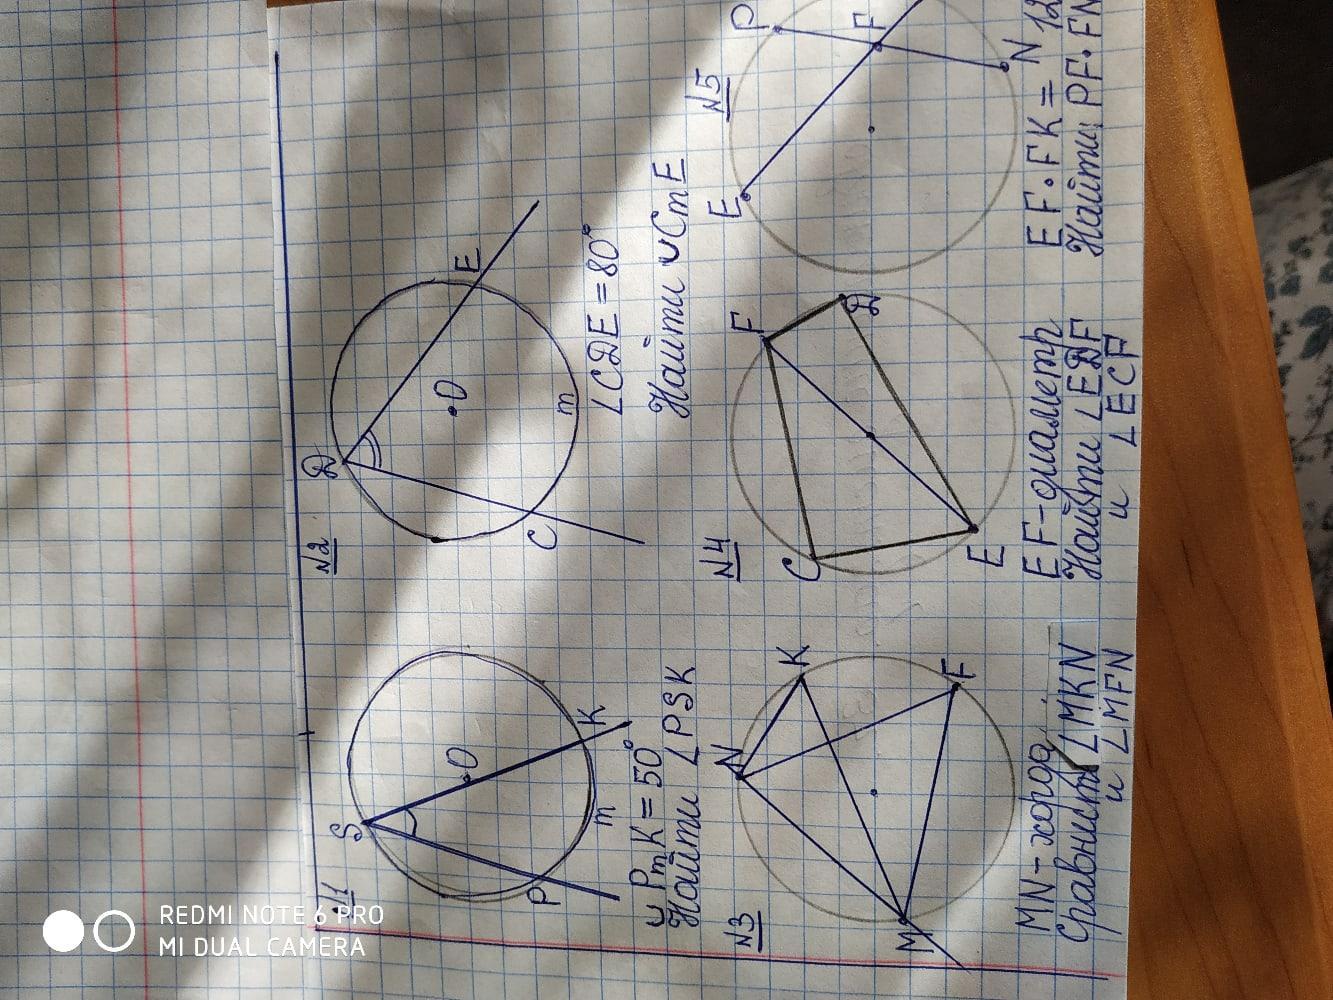 N1
S
O
P
m
K
∪PmK = 50°
Найти ∠PSK
N2
D
E
O
C
m
∠CDE = 80°
Найти ∪CmE
N3
N
K
M
F
MN-хорда
Сравнить ∠MKN
и ∠MFN
N4
F
C
D
E
EF-диаметр
Найти ∠EDF
и ∠ECF
N5
P
F
E
N
EF·FK = 12
Найти PF·FN
REDMI NOTE 6 PRO
MI DUAL CAMERA